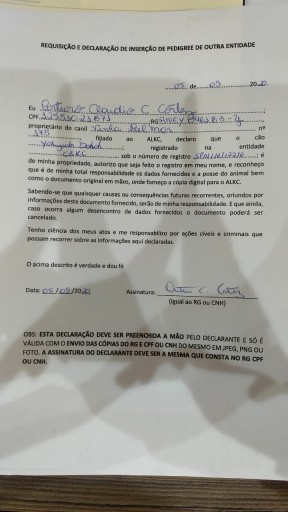 REQUISIÇÃO E DECLARAÇÃO DE INSERÇÃO DE PEDIGREE DE OUTRA ENTIDADE
05 de 09 2020
Eu Arturo Claudio C. Cortez
CPF RG
proprietário do canil nº
175, filiado ao ALKC, declaro que o cão
registrado na entidade
CBKC sob o número de registro é
de minha propriedade, autorizo que seja feito o registro em meu nome, e reconheço
que é de minha total responsabilidade os dados fornecidos e a posse do animal bem
como o documento original em mãos, onde forneço a cópia digital para o ALKC.
Sabendo-se que quaisquer causas ou consequências futuras recorrentes, oriundos por
informações deste documento fornecido, serão de minha responsabilidade. E que ainda,
caso ocorra algum desencontro de dados fornecidos o documento poderá ser
cancelado.
Tenho ciência dos meus atos e me responsabilizo por ações cíveis e criminais que
possam recorrer sobre as informações aqui declaradas.
O acima descrito é verdade e dou fé
Data: 05/09/2020 Assinatura:
(Igual ao RG ou CNH)
OBS: ESTA DECLARAÇÃO DEVE SER PREENCHIDA A MÃO PELO DECLARANTE E SÓ É
VÁLIDA COM O ENVIO DAS CÓPIAS DO RG E CPF OU CNH DO MESMO EM JPEG, PNG OU
FOTO. A ASSINATURA DO DECLARANTE DEVE SER A MESMA QUE CONSTA NO RG CPF
OU CNH.